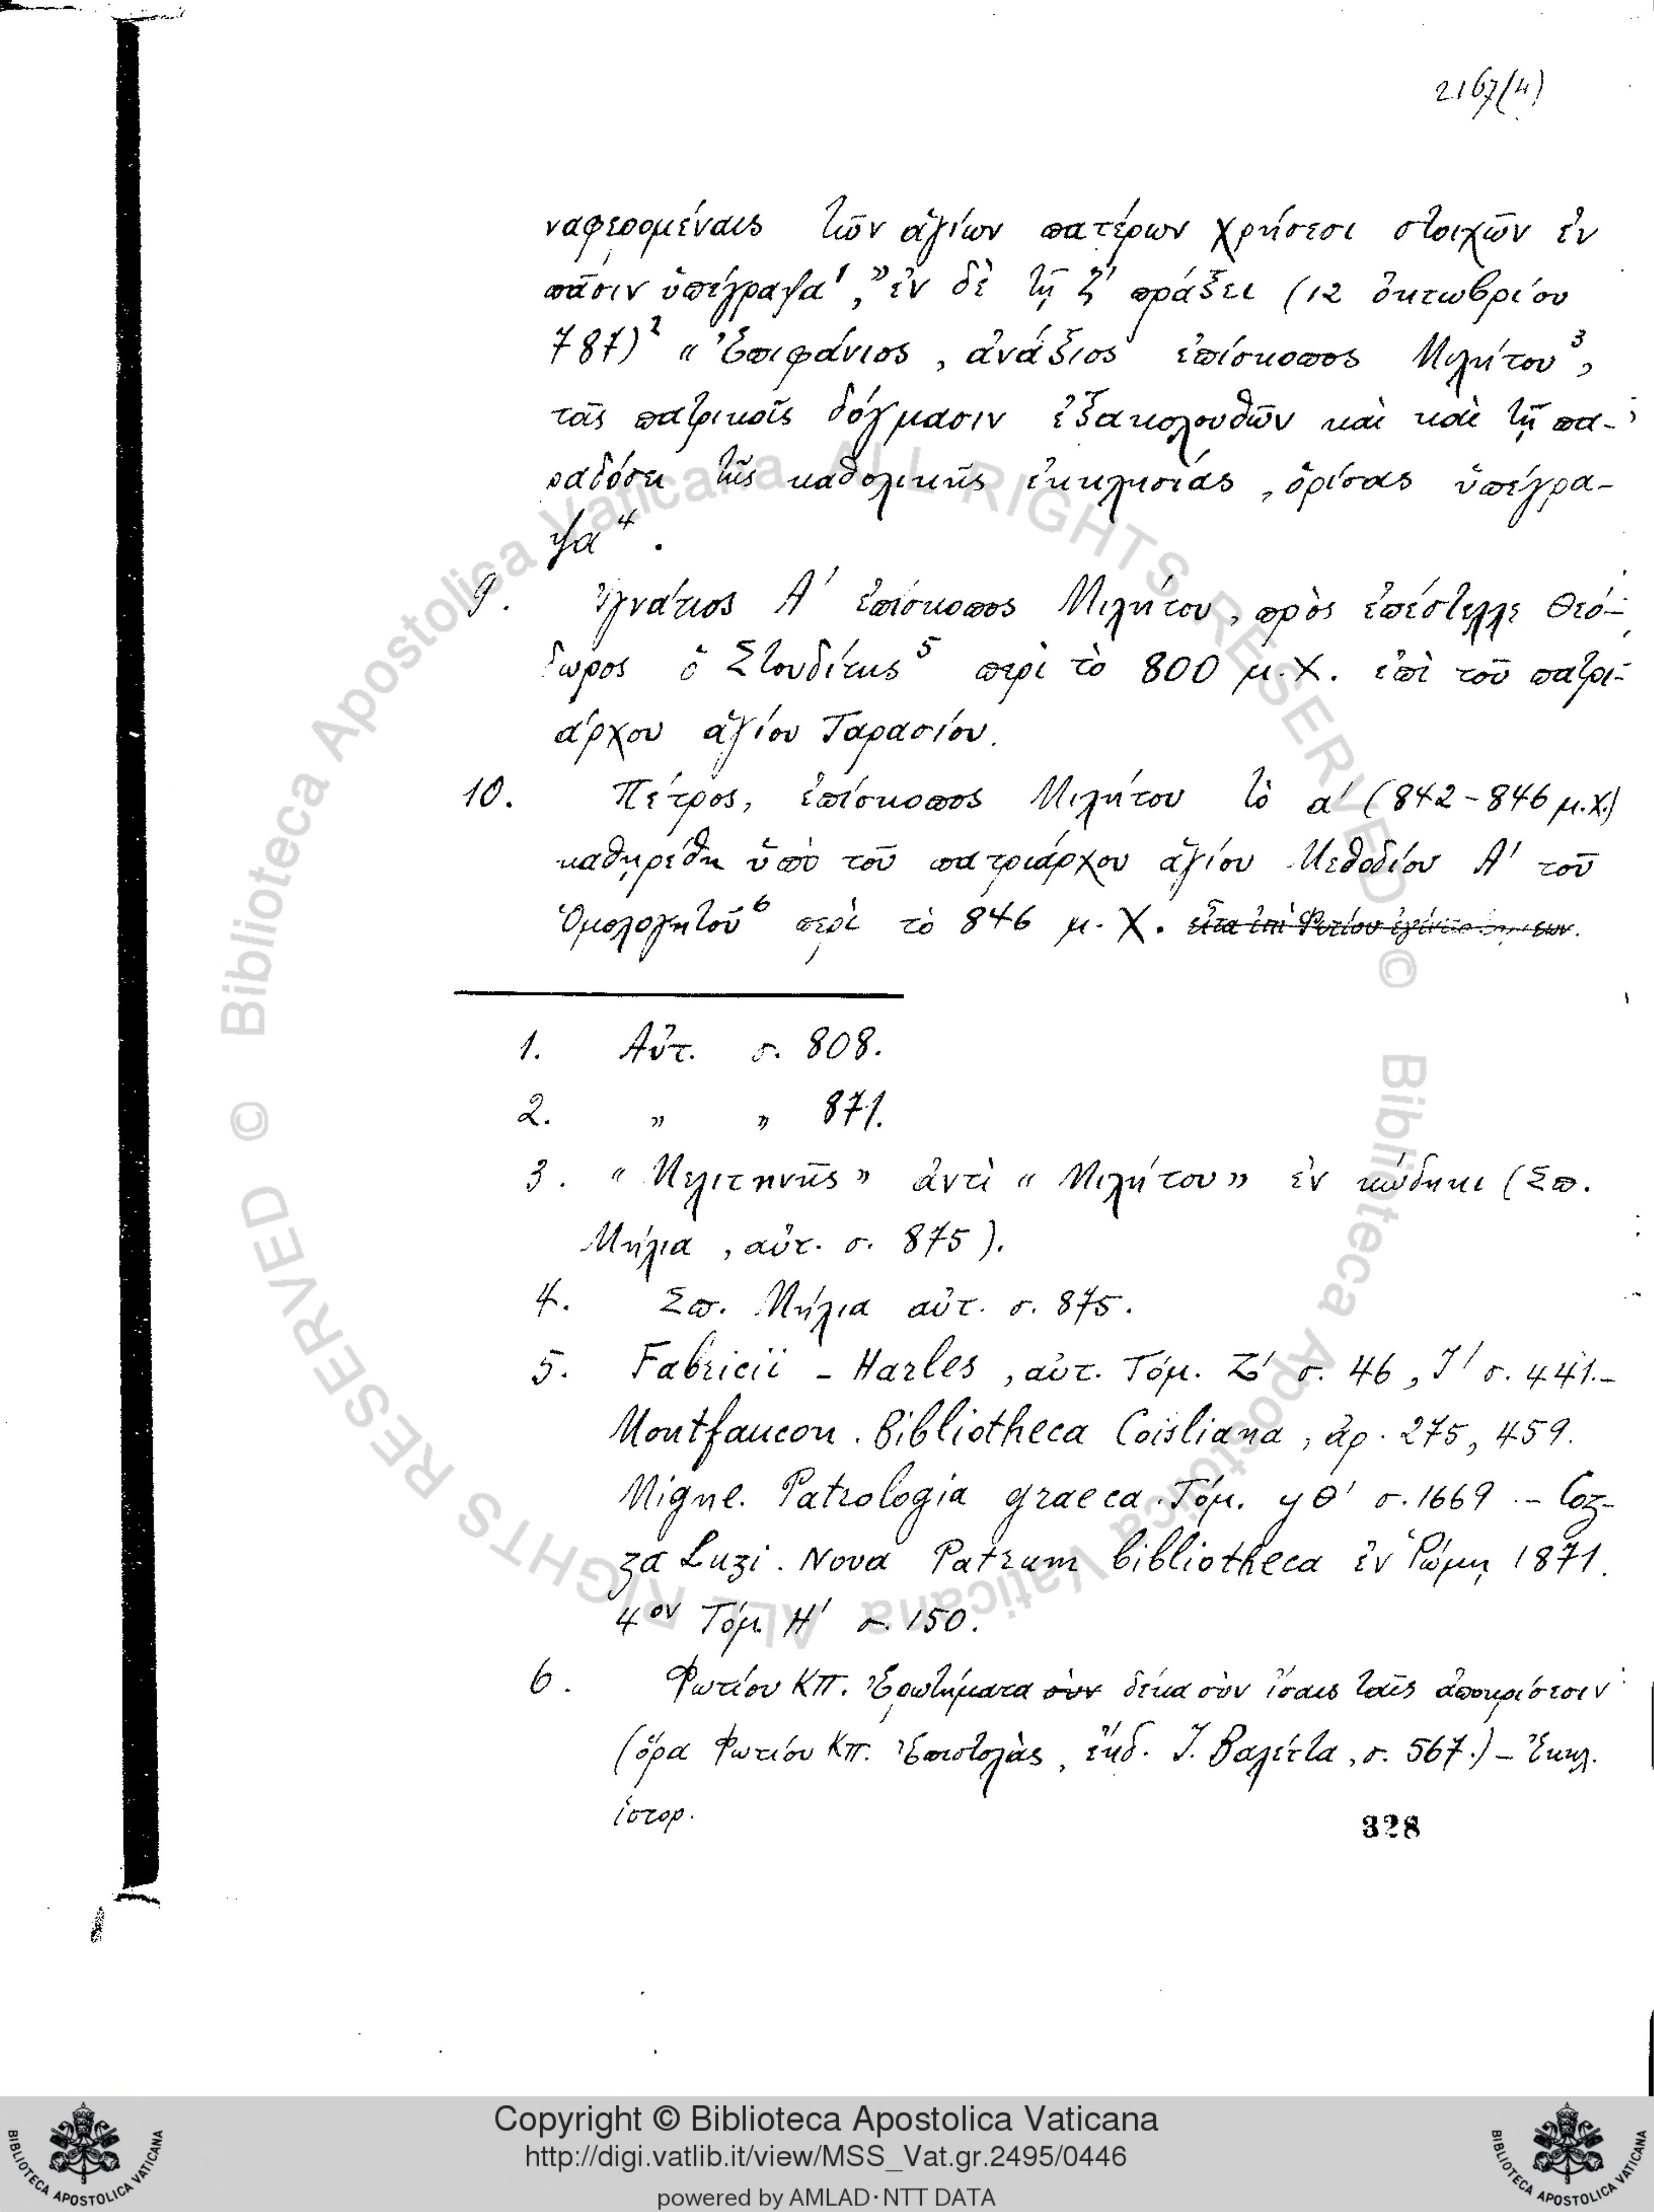 2167(4)
ναφερομέναις τῶν ἁγίων πατέρων χρήσεσι στοιχῶν ἐν
πᾶσιν ὑπέγραψα¹,” ἐν δὲ τῇ ζ′ πράξει (12 ὀκτωβρίου
787)² « Ἐπιφάνιος, ἀνάξιος ἐπίσκοπος Μιλήτου³,
τοῖς πατρικοῖς δόγμασιν ἐξακολουθῶν καὶ καὶ τῇ πα-
ραδόσει τῆς καθολικῆς ἐκκλησίας, ὁρίσας ὑπέγρα-
ψα⁴ .
9. Ἰγνάτιος Α′ ἐπίσκοπος Μιλήτου, πρὸς ἐπέστελλε Θεό-
δωρος ὁ Στουδίτης⁵ περὶ τὸ 800 μ.Χ. ἐπὶ τοῦ πατρι-
άρχου ἁγίου Ταρασίου.
10. Πέτρος, ἐπίσκοπος Μιλήτου τὸ α′ (842-846 μ.Χ.)
καθῃρέθη ὑπὸ τοῦ πατριάρχου ἁγίου Μεθοδίου Α′ τοῦ
Ὁμολογητοῦ⁶ περὶ τὸ 846 μ.Χ. εἶτα ἐπὶ Φωτίου
1. Αὐτ. σ. 808.
2. ” ” 871.
3. « Μελιτηνῆς » ἀντὶ « Μιλήτου » ἐν κώδηκι (Σπ.
Μήλια, αὐτ. σ. 875).
4. Σπ. Μήλια αὐτ. σ. 875.
5. Fabricii - Harles, αὐτ. Τόμ. Ζ′ σ. 46, Ι′ σ. 441.-
Montfaucon. Bibliotheca Coisliana, ἀρ. 275, 459.
Migne. Patrologia graeca. Τόμ. ϟθ′ σ. 1669 .- Coz-
za Luzi. Nova Patrum bibliotheca ἐν Ῥώμῃ 1871.
4ον Τόμ. Η′ σ. 150.
6. Φωτίου ΚΠ. Ἐρωτήματα σὺν δέκα σὺν ἴσαις ταῖς ἀποκρίσεσιν
(ὅρα Φωτίου ΚΠ. Ἐπιστολὰς, ἔκδ. Ι. Βαλέττα, σ. 567.) - Ἐκκλ.
ἱστορ.
328
© Biblioteca Apostolica Vaticana ALL RIGHTS RESERVED
© Biblioteca Apostolica Vaticana ALL RIGHTS RESERVED
Copyright © Biblioteca Apostolica Vaticana
http://digi.vatlib.it/view/MSS_Vat.gr.2495/0446
powered by AMLAD·NTT DATA
BIBLIOTECA APOSTOLICA VATICANA
BIBLIOTECA APOSTOLICA VATICANA